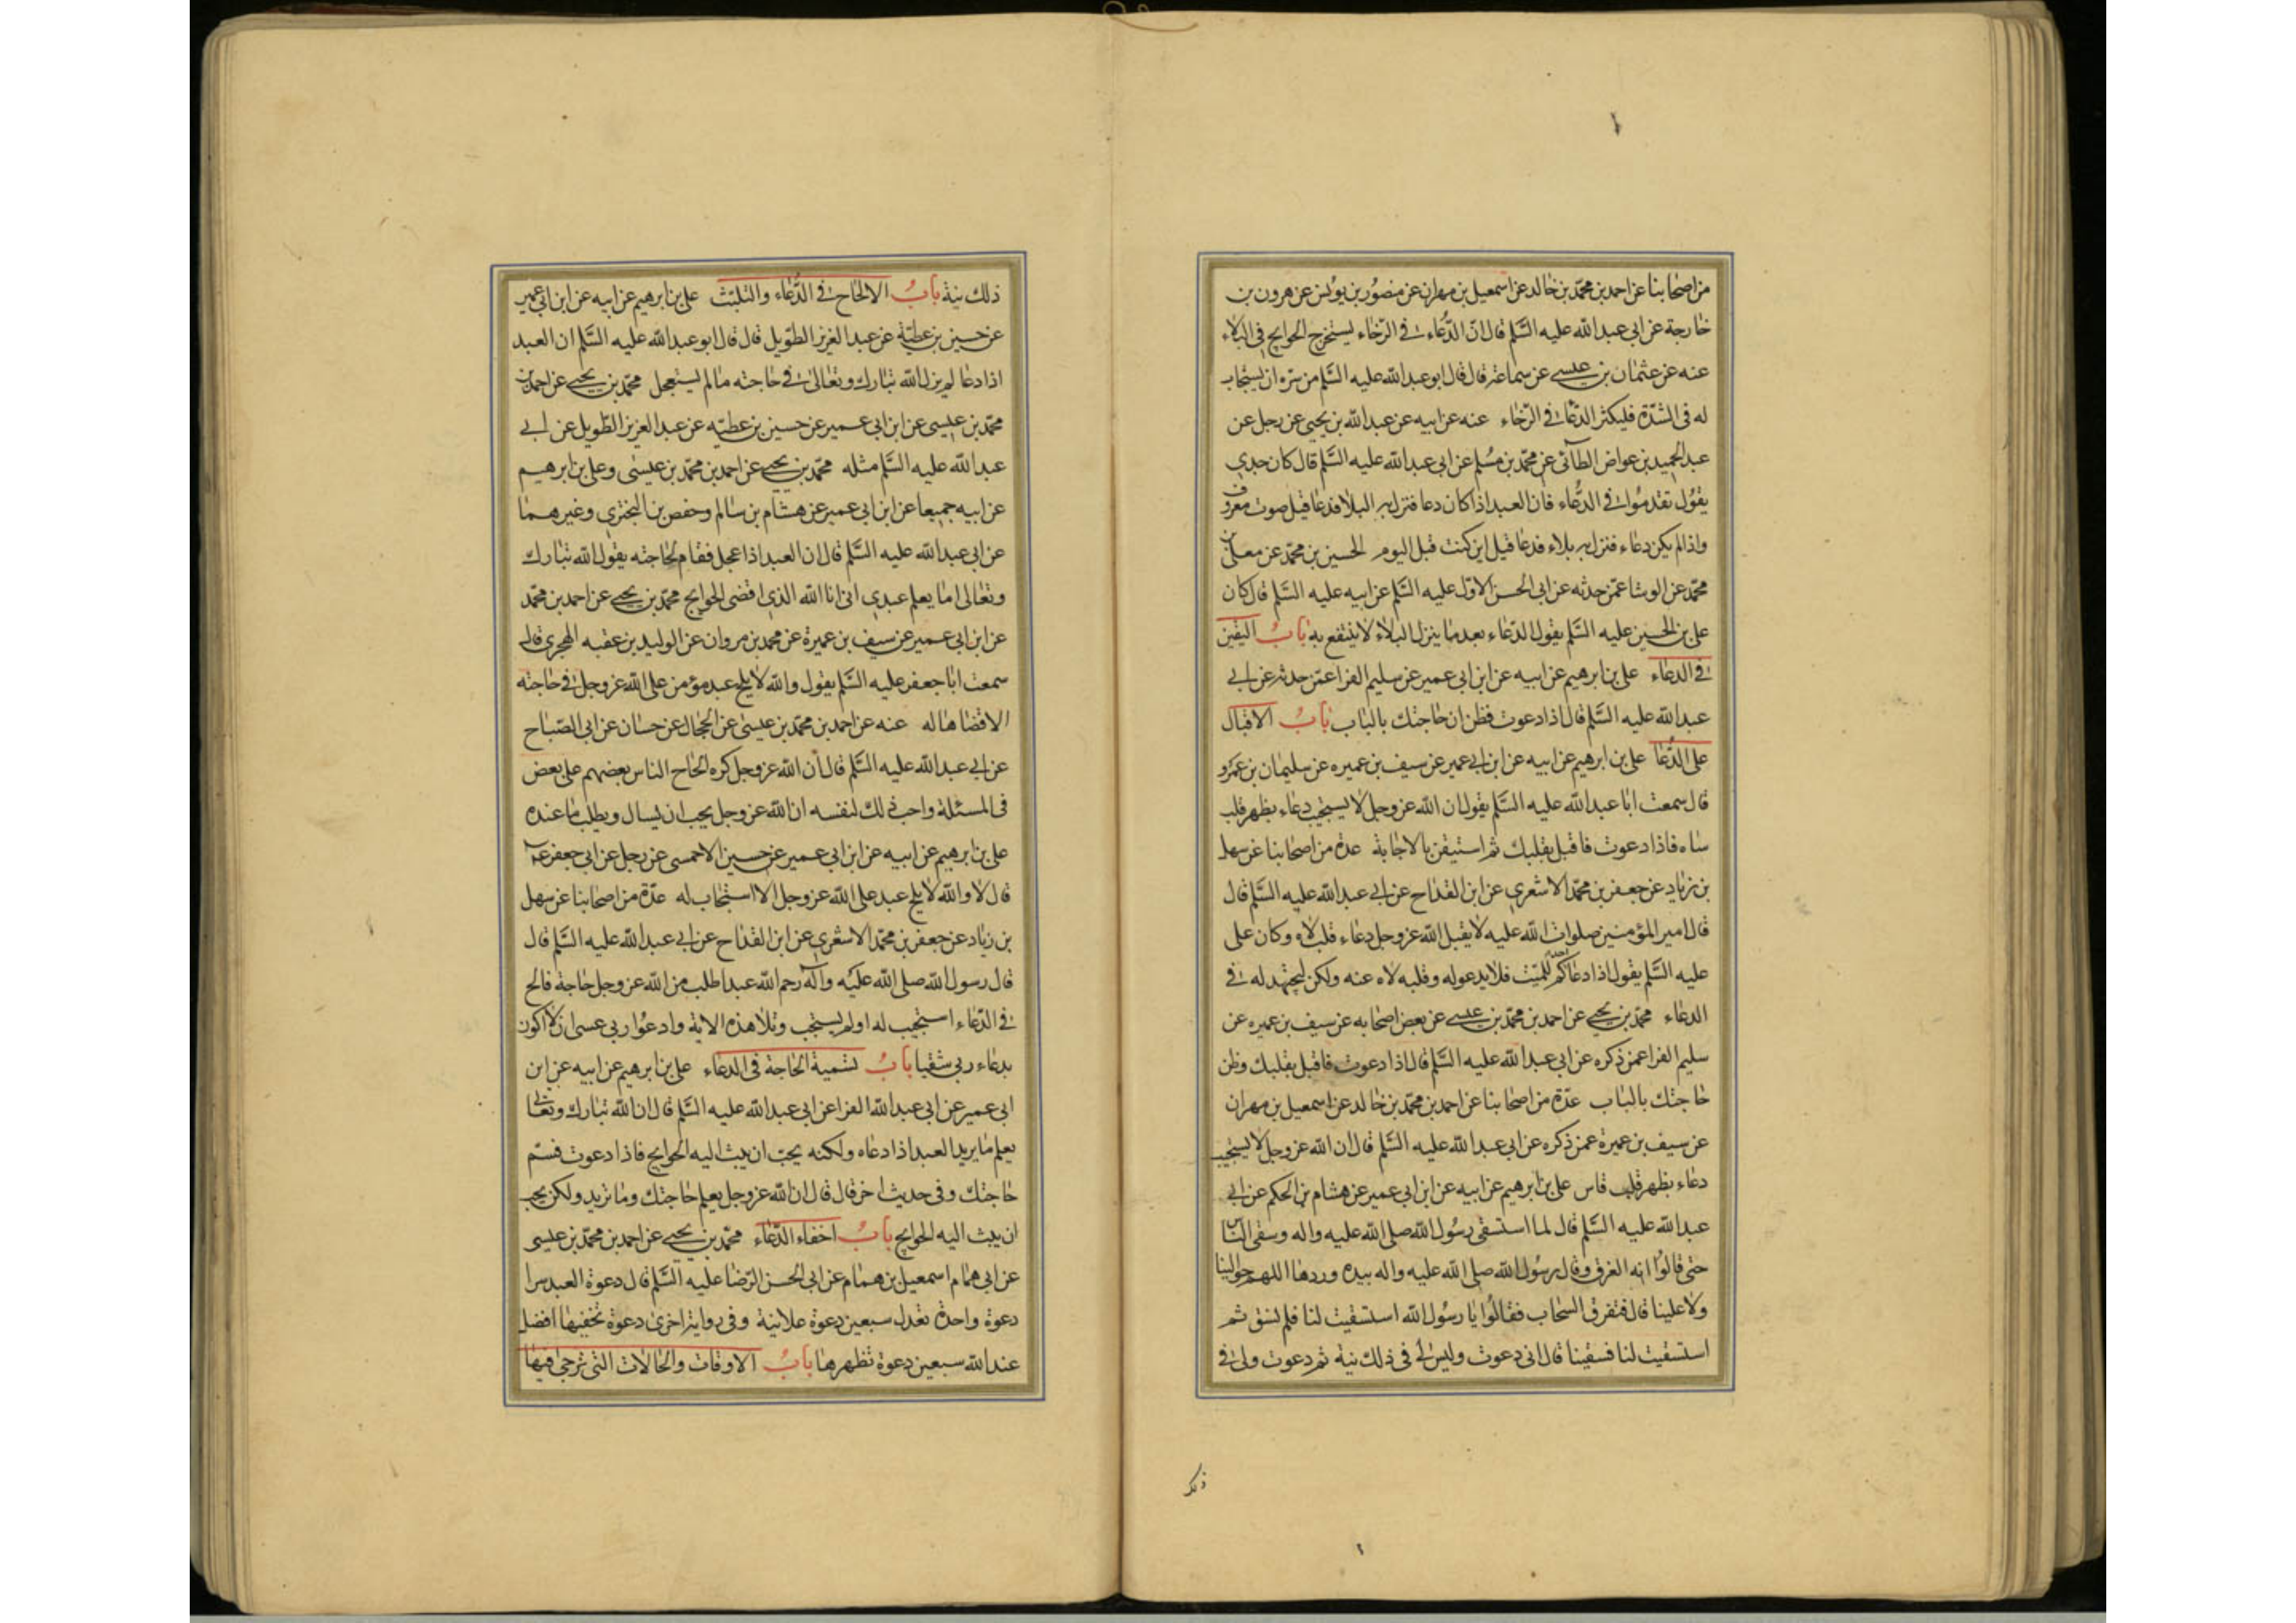 من اصحابنا عن احمد بن محمد بن خالد عن اسمعيل بن مهران عن منصور بن يونس عن هرون بن
خارجة عن ابي عبد الله عليه السلم قال ان الدعاء في الرخاء يستخرج الحوايج في البلاء
عنه عن عثمان بن عيسى عن سماعة قال قال ابو عبد الله عليه السلم من سره ان يستجاب
له في الشدة فليكثر الدعا في الرخاء عنه عن ابيه عن عبد الله بن يحيى عن رجل عن
عبد الحميد بن عواض الطائي عن محمد بن مسلم عن ابي عبد الله عليه السلم قال كان جدي
يقول تقدموا في الدعاء فان العبد اذا كان دعا فنزل به البلا فدعا قيل صوت معروف
واذا لم يكن دعاء فنزل به بلاء فدعا قيل اين كنت قبل اليوم الحسين بن محمد عن معلى بن
محمد عن الوشا عمن حدثه عن ابي الحسن الاول عليه السلم عن ابيه عليه السلم قال كان
علي بن الحسين عليه السلم يقول الدعاء بعد ما ينزل البلاء لا ينتفع به باب اليقين
في الدعاء علي بن ابرهيم عن ابيه عن ابن ابي عمير عن سليم الفرا عمن حدثه عن ابي
عبد الله عليه السلم قال اذا دعوت فظن ان حاجتك بالباب باب الاقبال
على الدعا علي بن ابرهيم عن ابيه عن ابن ابي عمير عن سيف بن عميره عن سليمان بن عمرو
قال سمعت ابا عبد الله عليه السلم يقول ان الله عز وجل لا يستجيب دعاء بظهر قلب
ساه فاذا دعوت فاقبل بقلبك ثم استيقن بالاجابة عدة من اصحابنا عن سهل
بن زياد عن جعفر بن محمد الاشعري عن ابن القداح عن ابي عبد الله عليه السلم قال
قال امير المؤمنين صلوات الله عليه لا يقبل الله عز وجل دعاء قلب لاه وكان علي
عليه السلم يقول اذا دعا احدكم للميت فلا يدعو له وقلبه لاه عنه ولكن ليجتهد له في
الدعاء محمد بن يحيى عن احمد بن محمد بن عيسى عن بعض اصحابه عن سيف بن عميره عن
سليم الفرا عمن ذكره عن ابي عبد الله عليه السلم قال اذا دعوت فاقبل بقلبك وظن
حاجتك بالباب عدة من اصحابنا عن احمد بن محمد بن خالد عن اسمعيل بن مهران
عن سيف بن عميرة عمن ذكره عن ابي عبد الله عليه السلم قال ان الله عز وجل لا يستجيب
دعاء بظهر قلب قاس علي بن ابرهيم عن ابيه عن ابن ابي عمير عن هشام بن الحكم عن ابي
عبد الله عليه السلم قال لما استسقى رسول الله صلى الله عليه واله وسقى الناس
حتى قالوا انه الغرق وقال رسول الله صلى الله عليه واله بيده وردها اللهم حوالينا
ولا علينا قال فتفرق السحاب فقالوا يا رسول الله استسقيت لنا فلم نسق ثم
استسقيت لنا فسقينا قال اني دعوت وليس لي في ذلك نية ثم دعوت ولي في
ذلك
ذلك نية باب الالحاح في الدعاء والتلبث علي بن ابرهيم عن ابيه عن ابن ابي عمير
عن حسين بن عطية عن عبد العزيز الطويل قال قال ابو عبد الله عليه السلم ان العبد
اذا دعا لم يزل الله تبارك وتعالى في حاجته ما لم يستعجل محمد بن يحيى عن احمد بن
محمد بن عيسى عن ابن ابي عمير عن حسين بن عطيه عن عبد العزيز الطويل عن ابي
عبد الله عليه السلم مثله محمد بن يحيى عن احمد بن محمد بن عيسى وعلي بن ابرهيم
عن ابيه جميعا عن ابن ابي عمير عن هشام بن سالم وحفص بن البختري وغيرهما
عن ابي عبد الله عليه السلم قال ان العبد اذا عجل فقام لحاجته يقول الله تبارك
وتعالى اما يعلم عبدي اني انا الله الذي اقضي الحوايج محمد بن يحيى عن احمد بن محمد
عن ابن ابي عمير عن سيف بن عميرة عن محمد بن مروان عن الوليد بن عقبه الهجري قال
سمعت ابا جعفر عليه السلم يقول والله لا يلح عبد مؤمن على الله عز وجل في حاجته
الا قضاها له عنه عن احمد بن محمد بن عيسى عن الحجال عن حسان عن ابي الصباح
عن ابي عبد الله عليه السلم قال ان الله عز وجل كره الحاح الناس بعضهم على بعض
في المسئلة واحب ذلك لنفسه ان الله عز وجل يحب ان يسال ويطلب ما عنده
علي بن ابرهيم عن ابيه عن ابن ابي عمير عن حسين الاحمسي عن رجل عن ابي جعفر عم
قال لا والله لا يلح عبد على الله عز وجل الا استجاب له عدة من اصحابنا عن سهل
بن زياد عن جعفر بن محمد الاشعري عن ابن القداح عن ابي عبد الله عليه السلم قال
قال رسول الله صلى الله عليه وآله رحم الله عبدا طلب من الله عز وجل حاجة فالح
في الدعاء استجيب له او لم يستجب وتلا هذه الاية وادعوا ربي عسى ان لا اكون
بدعاء ربي شقيا باب تسمية الحاجة في الدعاء علي بن ابرهيم عن ابيه عن ابن
ابي عمير عن ابي عبد الله الفرا عن ابي عبد الله عليه السلم قال ان الله تبارك وتعالى
يعلم ما يريد العبد اذا دعاه ولكنه يحب ان يبث اليه الحوايج فاذا دعوت فسم
حاجتك وفي حديث اخر قال قال ان الله عز وجل يعلم حاجتك وما تريد ولكن يحب
ان يبث اليه الحوايج باب اخفاء الدعاء محمد بن يحيى عن احمد بن محمد بن عيسى
عن ابي همام اسمعيل بن همام عن ابي الحسن الرضا عليه السلم قال دعوة العبد سرا
دعوة واحدة تعدل سبعين دعوة علانية وفي رواية اخرى دعوة تخفيها افضل
عند الله سبعين دعوة تظهرها باب الاوقات والحالات التي ترجى فيها